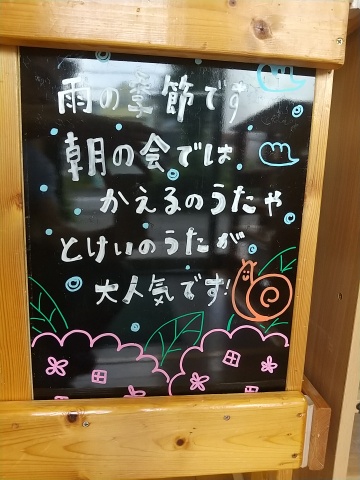 雨の季節です
朝の会では
かえるのうたや
とけいのうたが
大人気です!